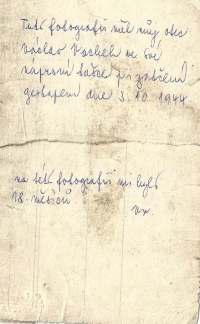 Tuto fotografii měl můj otec
Václav Vachek ve své
náprsní tašce při zatčení
gestapem dne 3. 10. 1944
na této fotografii mi bylo
18. měsíců